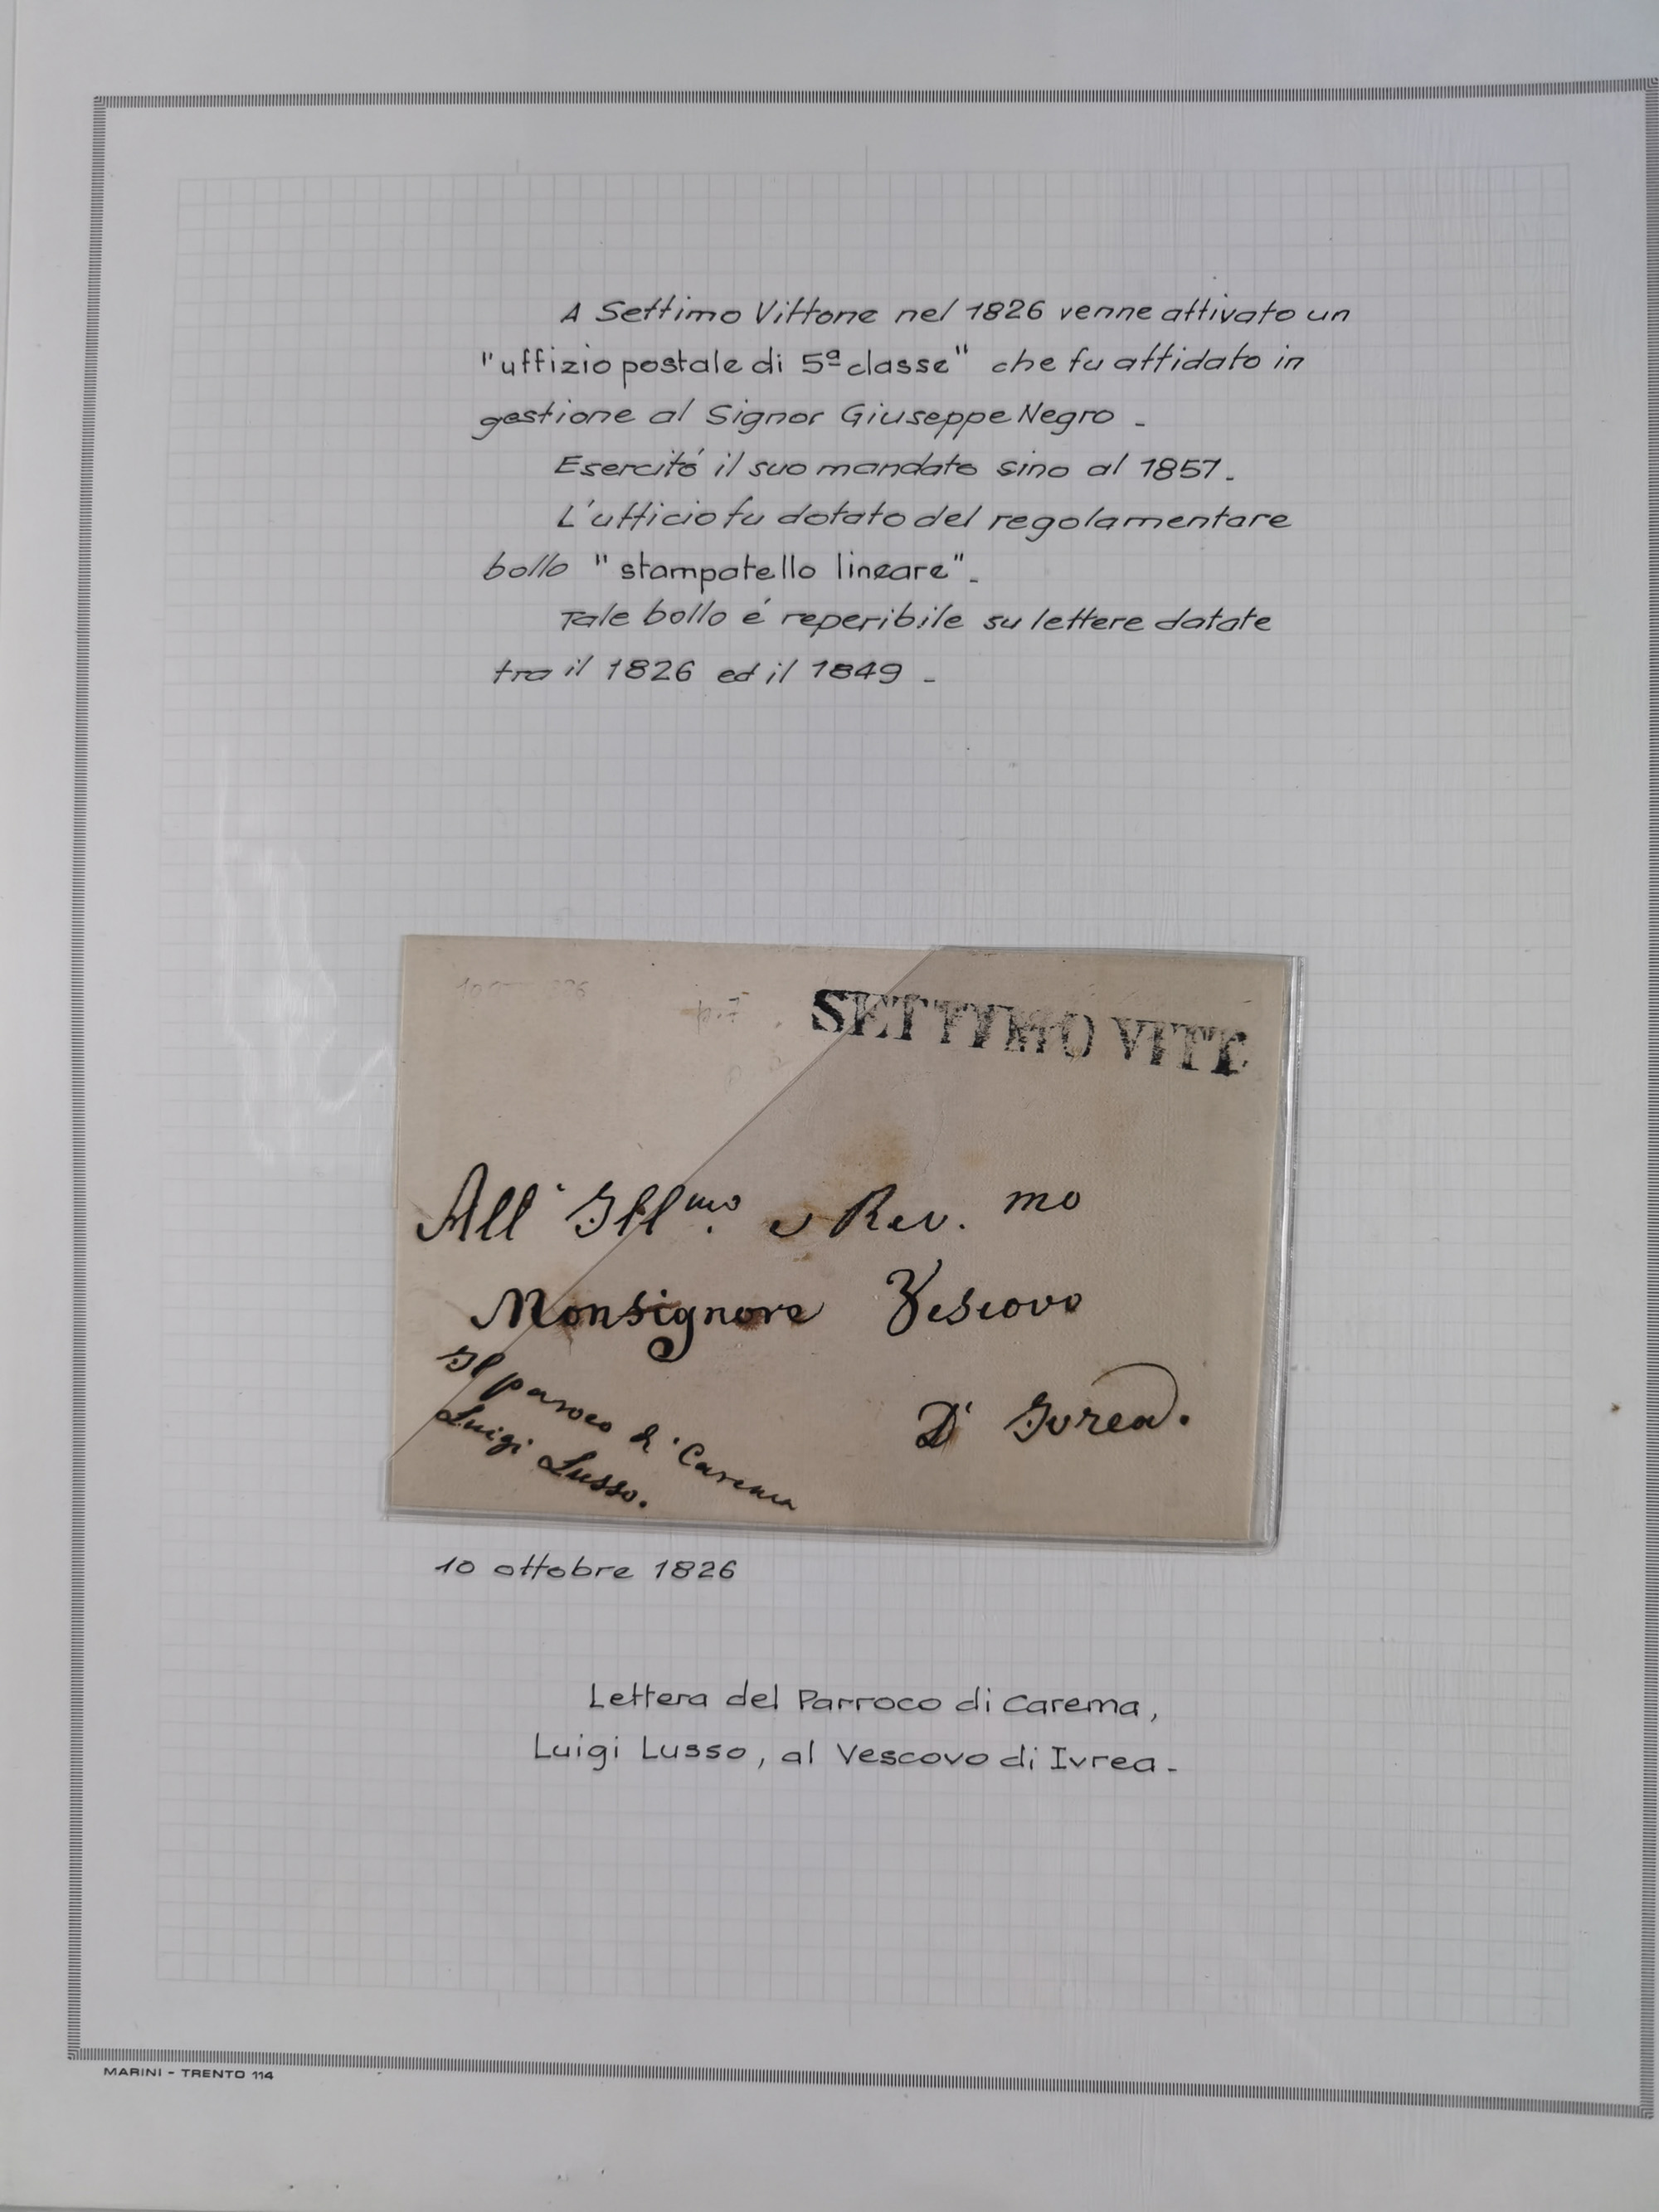 A Settimo Vittone nel 1826 venne attivato un
"uffizio postale di 5ª classe" che fu affidato in
gestione al Signor Giuseppe Negro -
Esercitó il suo mandato sino al 1857.
L'ufficio fu dotato del regolamentare
bollo "stampatello lineare".
Tale bollo é reperibile su lettere datate
tra il 1826 ed il 1849 -
SETTIMO VITT
All' Ill.mo e Rev.mo
Monsignore Vescovo
D' Ivrea.
Il paroco di Carema
Luigi Lusso.
10 ottobre 1826
Lettera del Parroco di Carema,
Luigi Lusso, al Vescovo di Ivrea -
MARINI - TRENTO 114